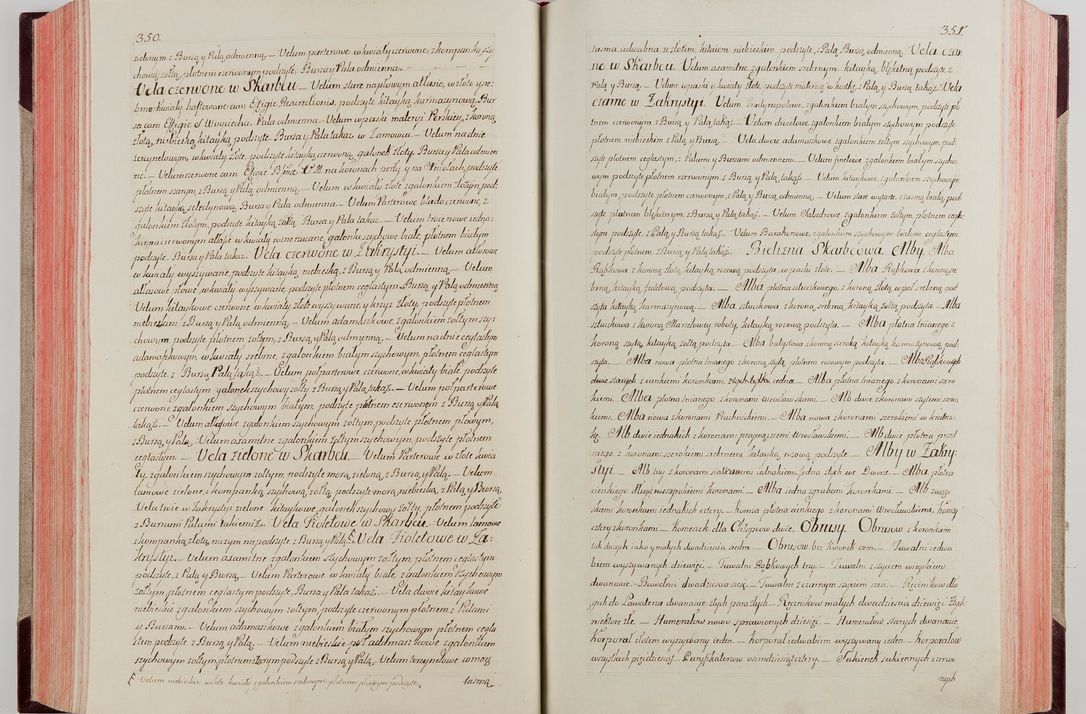 350.
zielonym z Bursą y Palą odmienną. — Velum parterowe w kwiaty czerwone, z kompanką szy
chową żołtą, płotnem czerwonym podszyte, Bursa y Pala odmienna. —
Vela czerwone w Skarbcu. — Velum stare na płowym atłasie, w złote y sre
brne kwiaty haftowane cum Effigie Resurectionis, podszyte kitayką karmazynową, Bur
sa cum Effigie S. Woyciecha. Pala odmienna. Velum w paski materyi Perskiey, z koroną
złotą, niebieską kitayką podszyte. Bursa y Pala takaż w Zamowcu. — Velum na dnie
tercynelowym, w kwiaty złote, podszyte kitayką czerwoną, galonek złoty. Bursa y Pala odmien
ne. — Velum czerwone cum Effigie B. V. M. na koronach perły y na Aniołach, podszyte
płotnem szarym, z Bursą y Palą odmienną. — Velum w kwiaty złote z galonkiem złotym pod:
szyte kitayką seledynową, Bursa y Pala odmienna. — Velum Parterowe blado czerwone, z
galonkiem złotym, podszyte kitayką żołtą, Bursa y Pala takaż. — Velum troie nowe iedno:
kie na czerwonym atłasie w kwiaty rozne rzucane, galonki szychowe białe, płotnem białym
podszyte. Bursa y Pala takaż. Vela czerwone w Zakrystyi. — Velum atłasowe
w kwiaty wyszywane, podszyte kitayką niebieską, z Bursą y Palą odmienną. — Velum
atłasowe płowe, w kwiaty wyszywane, podszyte płotnem ceglastym. Bursą y Palą odmienną.
Velum kitaykowe czerwone w kwiaty złote wyszywane, y krzyż złoty, podszyte płotnem
niebieskim z Bursą y Palą odmienną. — Velum adamaszkowe, z galonkiem żołtym szy:
chowym, podszyte płotnem żołtym, z Bursą y Palą odmienną. — Velum na dnie ceglastym
adamaszkowym, w kwiaty zielone, z galonkiem białym szychowym, płotnem ceglastym
podszyte. z Bursą Palą takąż. — Velum połparterowe czerwone, w kwiaty białe, podszyte
płotnem ceglastym, galonek szychowy żołty z Bursą y Palą takąż. — Velum połparterowe
czerwone z galonkiem szychowym białym, podszyte płotnem czerwonym z Bursą y Palą
takąż. — Velum atłasowe z galonkiem szychowym żołtym, podszyte płotnem płowym,
z Bursą y Palą. Velum axamitne z galonkiem żołtym szychowym, podszyte płotnem
ceglastym. — Vela zielone w Skarbcu. — Velum Parterowe w złote kwia
ty, z galonkiem szychowym żołtym, podszyte morą zieloną, z Bursą y Palą. — Velum
lamowe zielone, z kompanką szychową żołtą, podszyte morą niebieską, z Palą y Bursą.
Vela troie w Zakrystyi zielone kitaykowe, galonek szychowy żołty, płotnem podszyte
z Bursami Palami takiemiż. Vela Fioletowe w Skarbcu. Velum lamowe
z kompanką złotą, niczym niepodszyte z Bursą y Palą. F. Vela Fioletowe w Za:
krystyi. — Velum axamitne z galonkiem szychowym żołtym, płotnem ceglastym
podszyte, z Palą y Bursą. — Velum Parterowe w kwiaty białe, z galonkiem szychowym
żołtym płotnem ceglastym podszyte, Bursa y Pala takaż. — Vela dwoie kitaykowe
niebieskie z galonkiem szychowym żołtym, podszyte czerwonym płotnem z Palami
y Bursami. — Velum adamaszkowe z galonkiem białym szychowym płotnem cegla
stem podszyte z Bursą y Palą. — Velum niebieskie poł adamaszkowe z galonkiem
szychowym żołtym, płotnem starym podszyte z Bursą y Palą. Velum tercynelowe w mozg
F Velum niebieskie w złote kwiaty z galonkiem srebrnym płotnem płowym podszyte.
taśmą
351.
taśma iedwabna ze złotem, kitaiem niebieskim podszyte, z Palą, Bursą odmienną. Vela czar
ne w Skarbcu. Velum axamitne, z galonkiem srebrnym, kitayką błękitną podszyte z
Palą y Bursą. — Velum w paski y kwiaty złote, podszyte materyą w kostkę, z Palą y Bursą takąż. Vela
czarne w Zakrystyi. Velum Gradynapolowe, z galonkiem białym szychowym, podszyte pł
tnem czerwonym z Bursą y Palą takąż. — Velum choroelowe, z galonkiem białym szychowym podszyte
płotnem niebieskim z Palą y Bursą. — Vela dwoie adamaszkowe, z galonkiem żołtym szychowym, pod:
szyte płotnem ceglastym, z Palami y Bursami odmiennemi. — Velum grezetowe z galonkiem białym szycho:
wym podszyte płotnem czerwonym z Bursą y Palą takąż. — Velum kitaykowe, z galonkiem szychowym
białym, podszyte płotnem czerwonym, z Palą y Bursą odmienną. — Velum stare wytarte, z taśmą białą, pod:
szyte płotnem błękitnym, z Bursą y Palą takąż. — Velum Salatrowe z galonkiem żołtym, płotnem cegla:
stym podszyte, z Palą y Bursą odmienną. — Velum Barakanowe, z galonkiem szychowym białym, ceglastym
podszyte płotnem, z Bursą y Palą takąż. Bielizna Skarbcowa. Alby. Alba
Rąbkowa z koroną złotą, kitayką rosową podszyta, w paski złote. — Alba Rąbkowa z koroną sr:
brną, kitayką fioletową, podszyta. — Alba płotna sztuckowego, z koroną złotą, w poł srebrną pod
szyta kitayką karmazynową. — Alba sztuckowa z koroną srebrną, kitayką żołtą podszyta. — Alba
sztuckowa z koroną Marcelowey roboty, kitayką rosową podszyta. — Alba płotna lnianego z
koroną szytą, kitayką żołtą podszyta. — Alba batystowa z koroną szeroką, kitayką karmazynową pod:
szyta. — Alba nowa płotna lnianego, z koroną szytą, płotnem rosowym podszyta. — Alba Rąbkowych
dwie starych, z cienkiemi koronkami. Alba iedna. — Alba płotna lnianego z koronami szero
kiemi. Alba płotna lnianego z koronami Wrocławskiemi. — Alb dwie z koronami szytemi szero:
kiemi. Alba nowa z koronami Puchnickiemi. — Alba nowa z koronami szerokiemi w kratecz:
kę. Alb dwie iednakich z koronami przywozzemi Wrocławskiemi. — Alb dwie płotna prost
szego z koronami szerokiemi srebrnemi, kitayką rosową podszyte — Alby w Zakry:
styi. — Alb trzy z koronami siatkowemi iednakiemi, iedna złych we Dworze. — Alba płotna
cienkiego z koronami. — Alba iedna z grubemi koronkami. — Alb z wąz
skiemi koronkami iednakich cztery. — Homza płotna cienkiego z koronami Wrocławskiemi, homzy
cztery z koronkami. — Komeżek dla Chłopcow dwie. Obrusy. Obrusow z koronkami
tak duzych iako y małych dwadzieścia ieden. — Obrusow bez koronek osm. — Tuwalni iedwa
biem wyszywanych dziewięć. — Tuwalni Rąbkowych trzy. — Tuwalni z szyciem węzskim
dwanaście. — Bawełni dwadzieścia sześć. — Tuwalni z czarnym szyciem sześć. — Ręcznikow dłu
gich do Lawaterza dwanaście złych para złych. — Ręcznikow małych dwadzieścia dziewięć z tych
niektore złe. — Humerałow nowo sprawionych dziewięć. — Humerałow starych dwanaście.
korporał złotem wyszywany ieden. — korporał iedwabiem wyszywany ieden. — korporałow
wszystkich pięćdziesiąt. — Puryfikaterzow osimdziesiąt cztery. — Sukienek sukiennych czerwo
nych